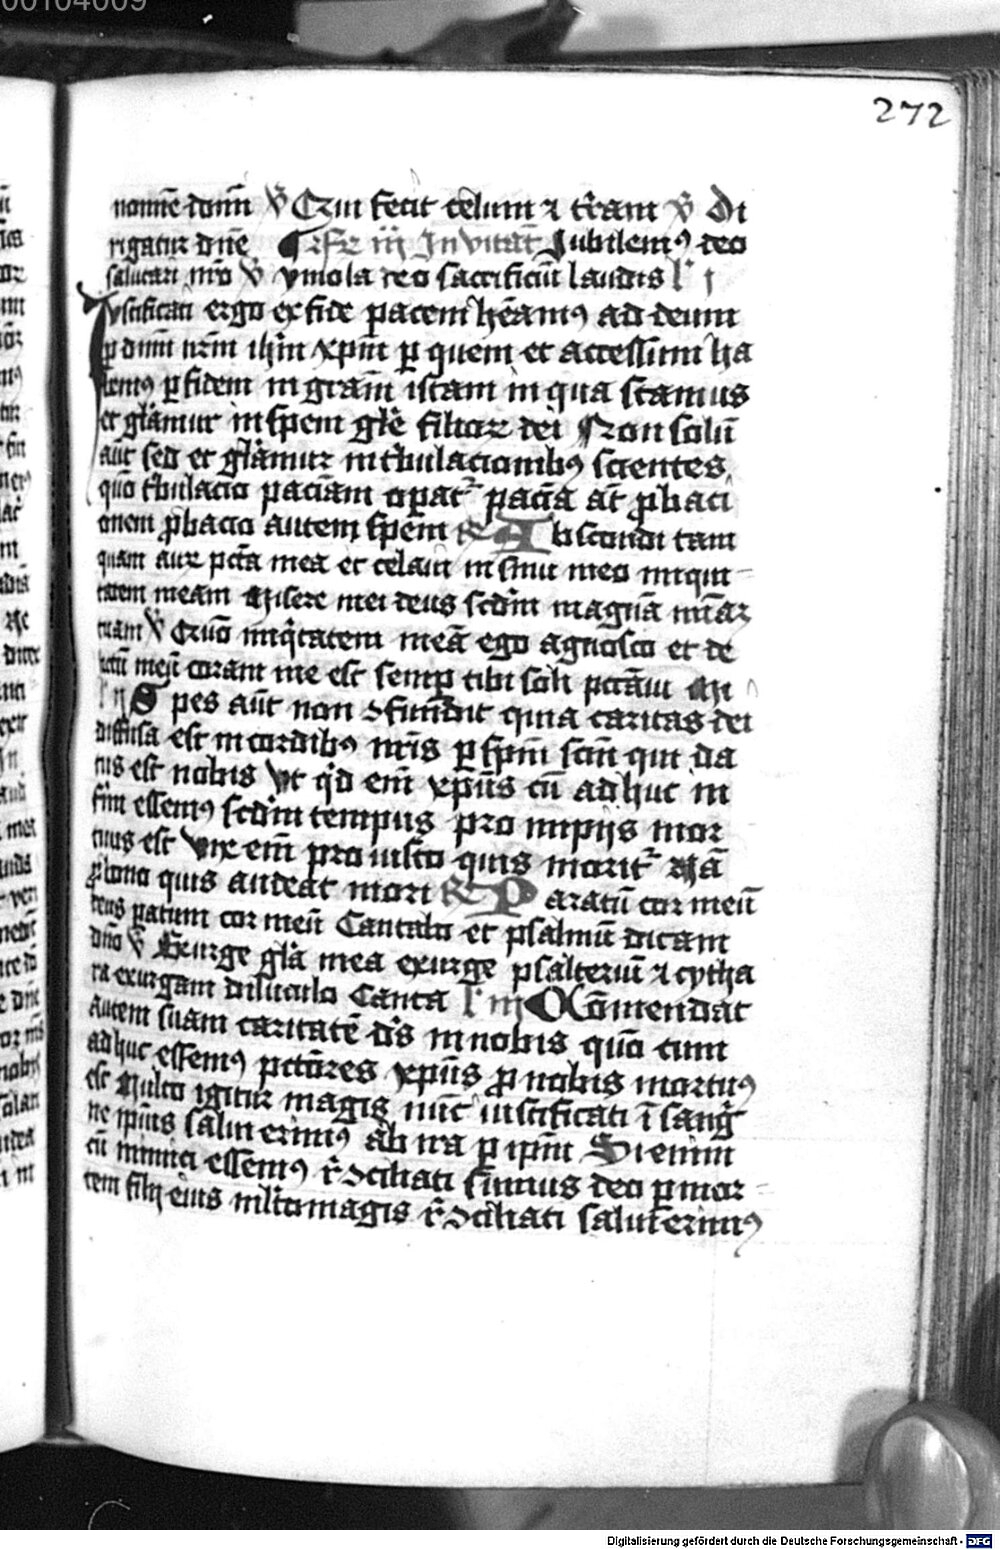 00104009
272
nomīe domī v̄ Qui fecit celum ⁊ t̄ram v̄ Di
rigatur dn̄e Fr̄ iij Invitat̄ Jubilemꝰ deo
salutari nr̄o v̄ ymola deo sacrificiū laudis l' j
Justificati ergo ex fide pacem hēamꝰ ad deum
p dnm̄ nr̄m ihm̄ xpm̄ p quem et accessum ha
bemꝰ p fidem in grām istam in qua stamus
et glāmur in spem glē filioꝝ dei Non solū
aut̄ sed et glāmur in tb̄ulacionibꝰ scientes
quō tb̄ulacio paciam opat' paciā at̄ pbaci
onem pbacio autem spem R̄ Abscondi tam
quam auꝝ pctā mea et celaui in sinu meo iniqui
tatem meam Misere mei deus scdm̄ magnā mīaꝫ
tuam v̄ Quō iniqitatem meā ego agnosco et de
lictū meū coram me est semp tibi soli pctāui Mi
l' ij Spes aut̄ non ꝯfundit quia caritas dei
diffusa est in cordibꝰ nr̄is p spm̄ scm̄ qui da
tus est nobis Ut qd em̄ xpūs cū adhuc in
firmi essemꝰ scdm̄ tempus pro impijs mor
tuus est Vix em̄ pro iusto quis morit' Nā
p bono quis audeat mori R̄ Paratū cor meū
deus patum cor meū Cantabo et psalmū dicam
dn̄o v̄ Exurge glā mea exurge psalteriū ⁊ cytha
ra exurgam diluculo Canta l' iij Cōmendat
autem suam caritatē ds̄ in nobis quō cum
adhuc essemꝰ pctōres xpūs p nobis mortuꝰ
est Multo igitur magis nūc iustificati ī sanḡ
ne ipiūs salui erimꝰ ab ira p ipm̄ Si enim
cū inimici essemꝰ r̄ꝯciliati sumus deo p mor
tem filij eius ml̄to magis r̄ꝯciliati salui erimꝰ
Digitalisierung gefördert durch die Deutsche Forschungsgemeinschaft - DFG